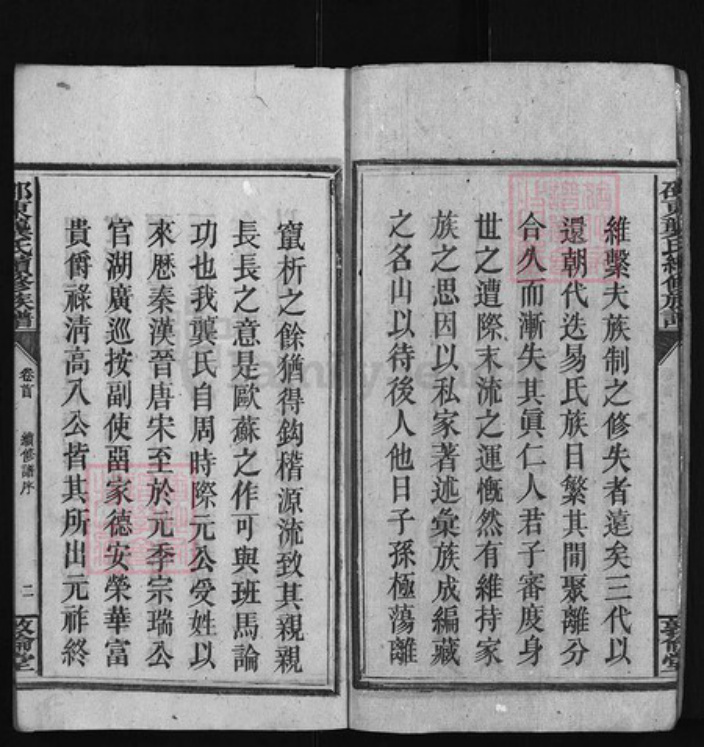 維繫夫族制之修失者遠矣三代以
還朝代迭易氏族日繁其間聚離分
合久而漸失其眞仁人君子審度身
世之遭際末流之運慨然有維持家
族之思因以私家著述彙族成編藏
之名山以待後人他日子孫極蕩離
竄析之餘猶得鈎稽源流致其親親
長長之意是歐蘇之作可與班馬論
功也我龔氏自周時際元公受姓以
來歷秦漢晉唐宋至於元季宗瑞公
官湖廣巡按副使畱家德安榮華富
貴爵祿淸高八公皆其所出元祚終
邵東龔氏續修族譜
卷首
續修譜序
二
敦倫堂